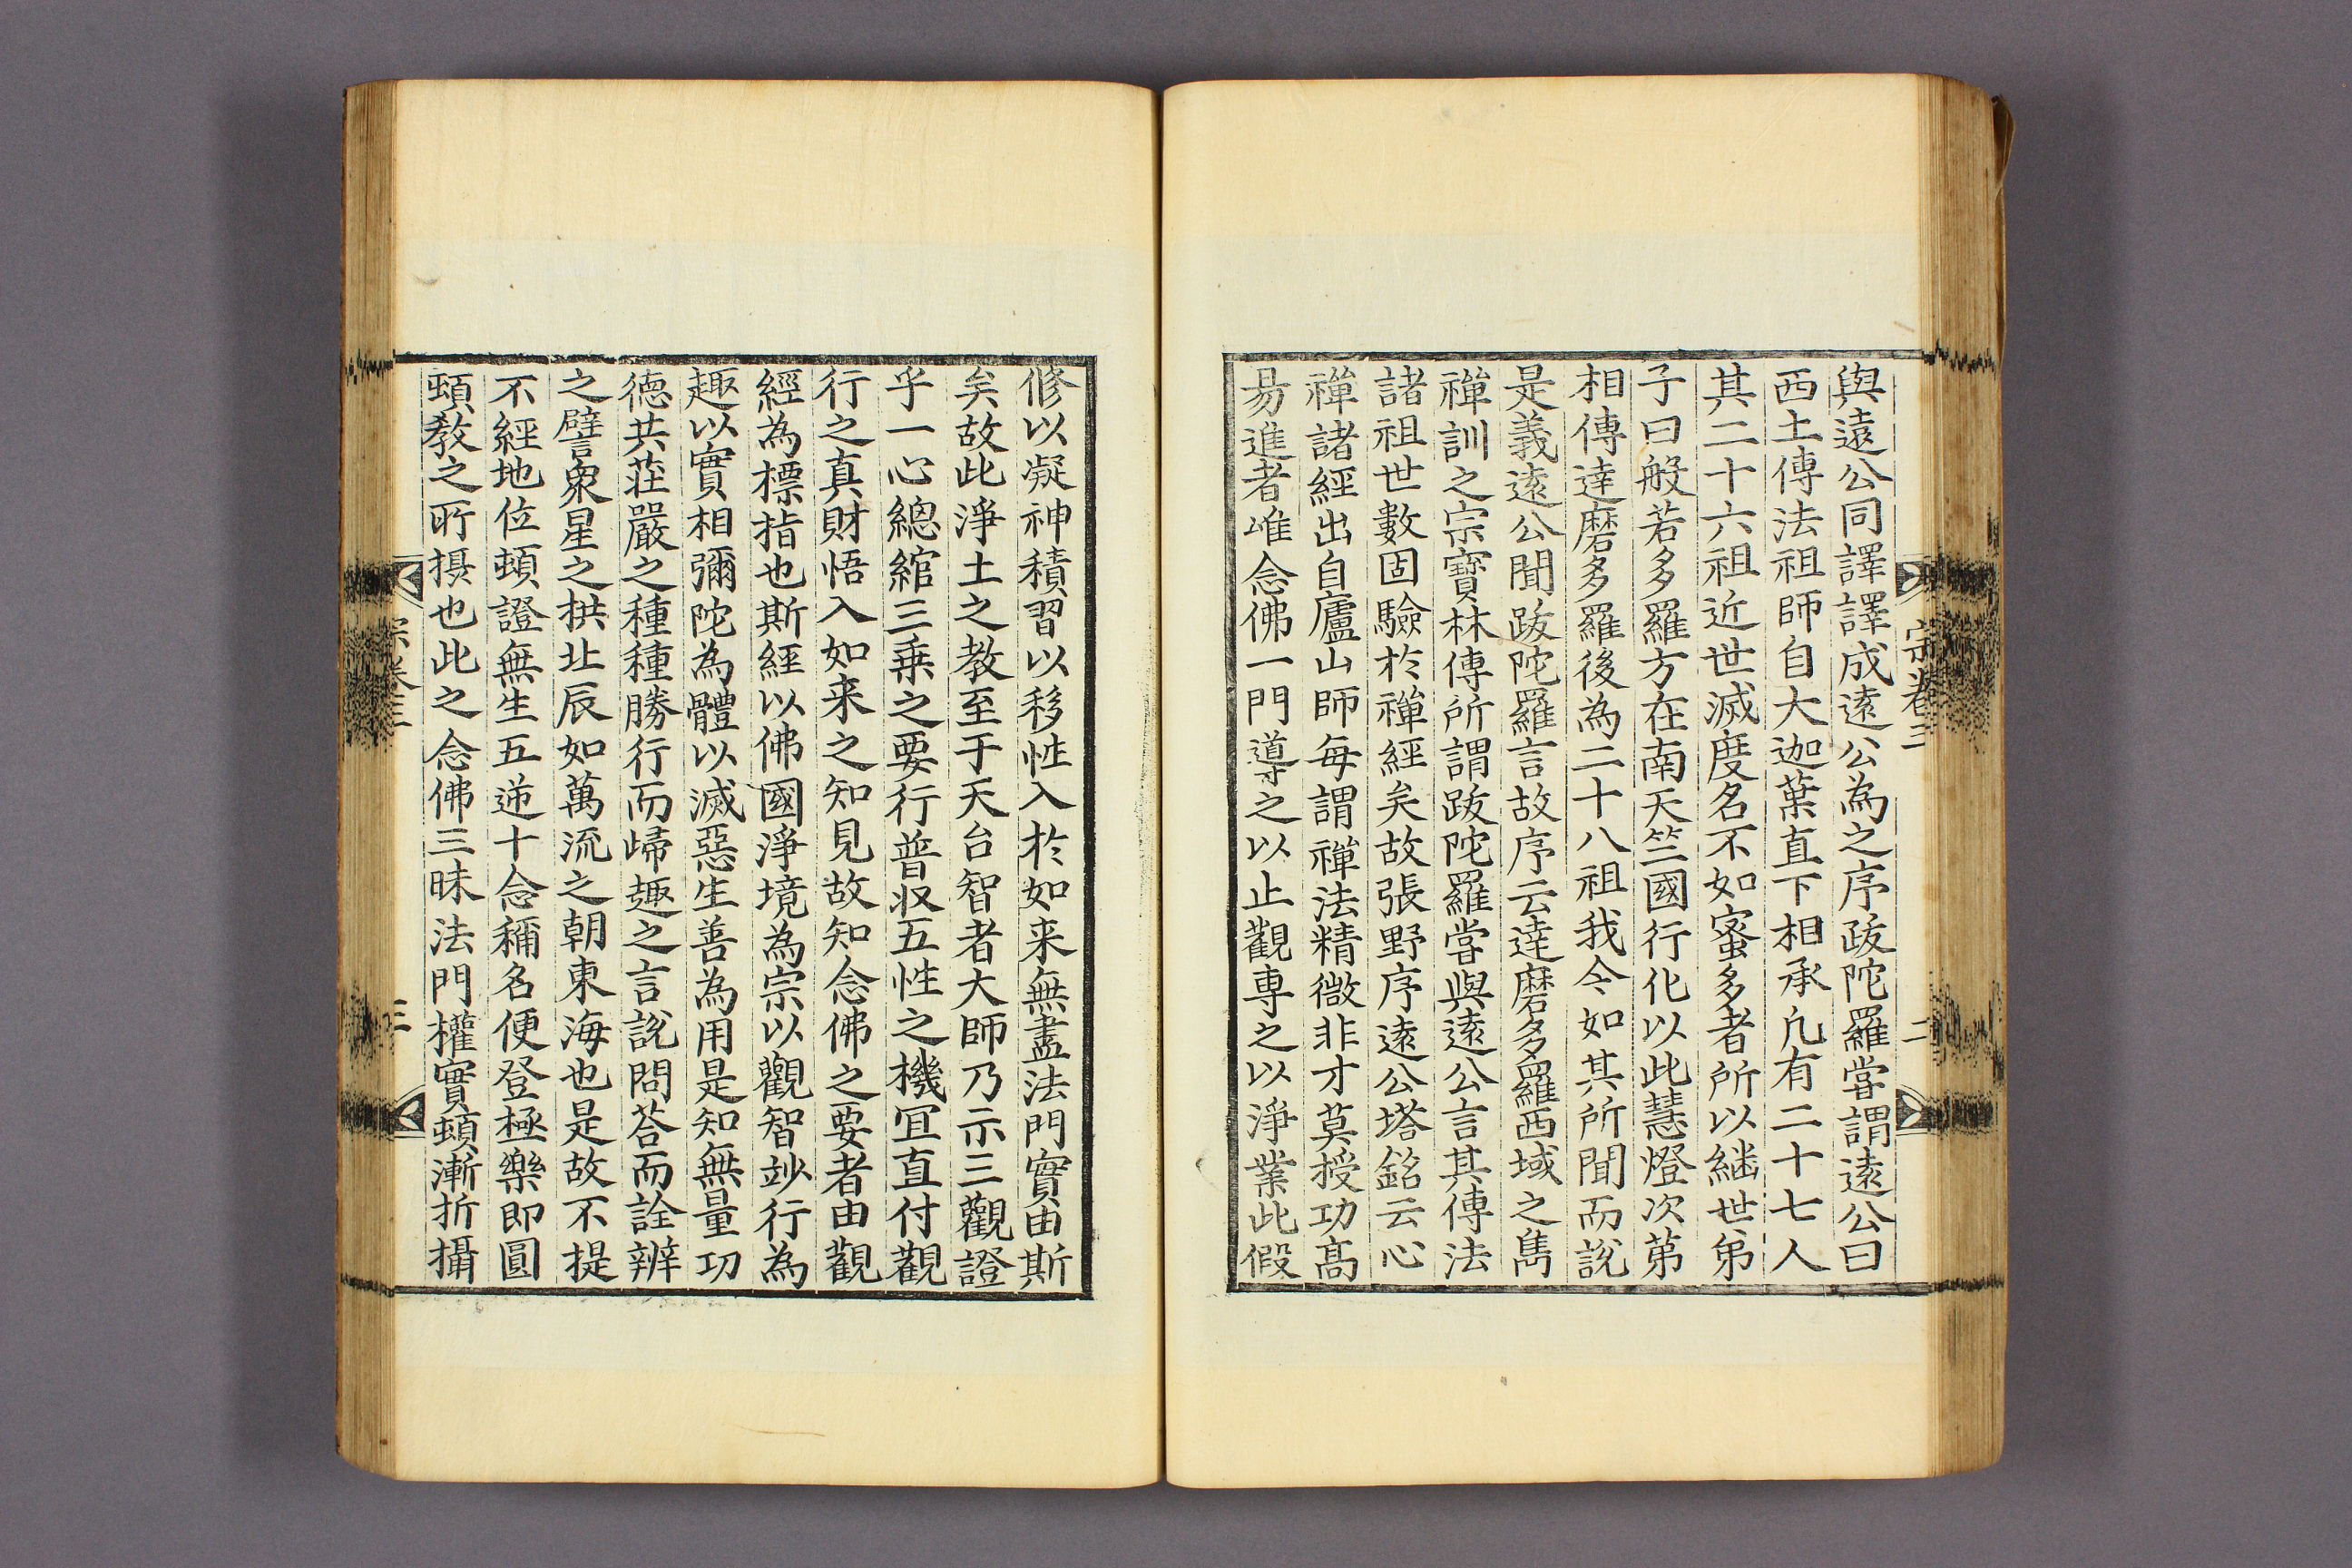 與遠公同譯譯成遠公為之序跋陀羅嘗謂遠公曰
西土傳法祖師自大迦葉直下相承凡有二十七人
其二十六祖近世滅度名不如蜜多者所以繼世弟
子曰般若多羅方在南天竺國行化以此慧燈次第
相傳達磨多羅後為二十八祖我今如其所聞而說
是義遠公聞跋陀羅言故序云達磨多羅西域之雋
禪訓之宗寶林傳所謂跋陀羅嘗與遠公言其傳法
諸祖世數固驗於禪經矣故張野序遠公塔銘云心
禪諸經出自廬山師每謂禪法精微非才莫授功高
易進者唯念佛一門導之以止觀專之以淨業此假
宗卷三
二
修以凝神積習以移性入於如来無盡法門實由斯
矣故此淨土之教至于天台智者大師乃示三觀證
乎一心總綰三乗之要行普収五性之機冝直付觀
行之真財悟入如来之知見故知念佛之要者由觀
經為標指也斯經以佛國淨境為宗以觀智妙行為
趣以實相彌陀為體以滅惡生善為用是知無量功
德共莊嚴之種種勝行而歸趣之言說問荅而詮辨
之譬衆星之拱北辰如萬流之朝東海也是故不提
不經地位頓證無生五逆十念稱名便登極樂即圓
頓教之所攝也此之念佛三昧法門權實頓漸折攝
宗卷三
三